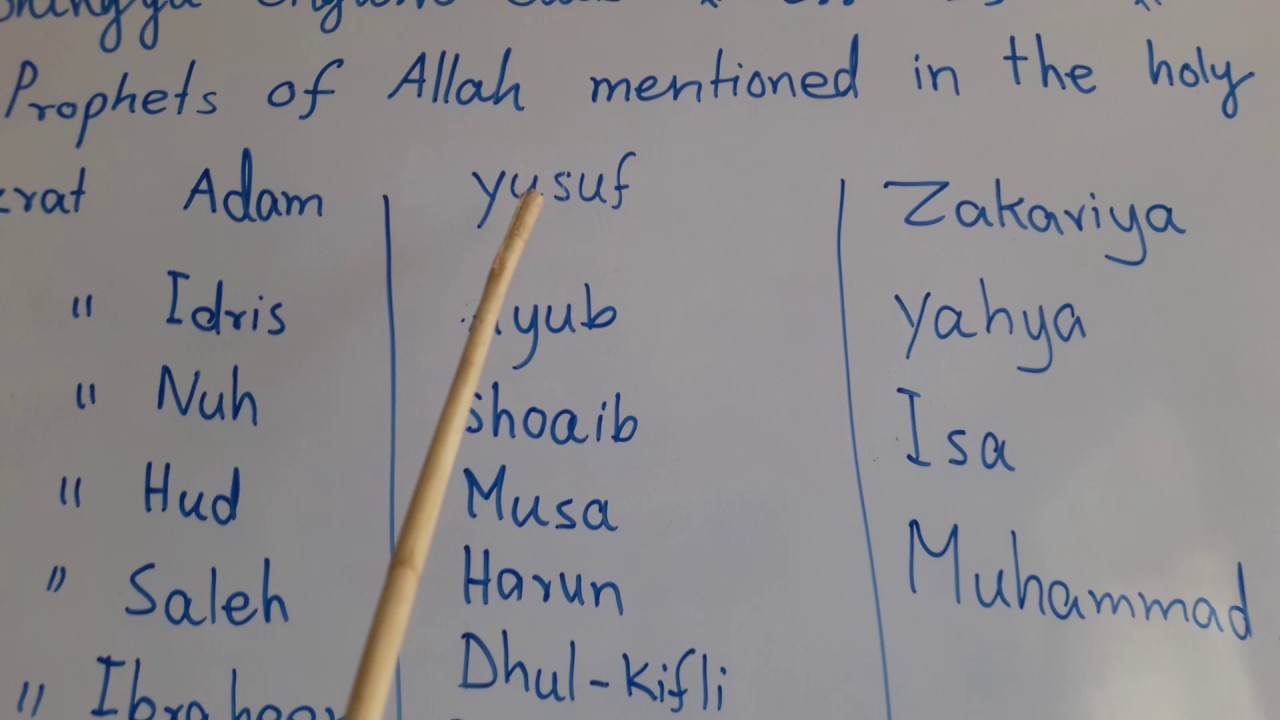 Prophets of Allah mentioned in the holy
Adam
" Idris
" Nuh
" Hud
" Saleh
"
yusuf
Ayub
shoaib
Musa
Harun
Dhul-kifli
Zakariya
yahya
Isa
Muhammad